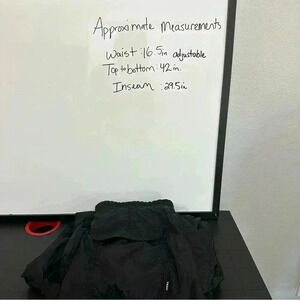 Approximate Measurements
Waist : 16.5in adjustable
Top to bottom : 42 in.
Inseam : 29.5in